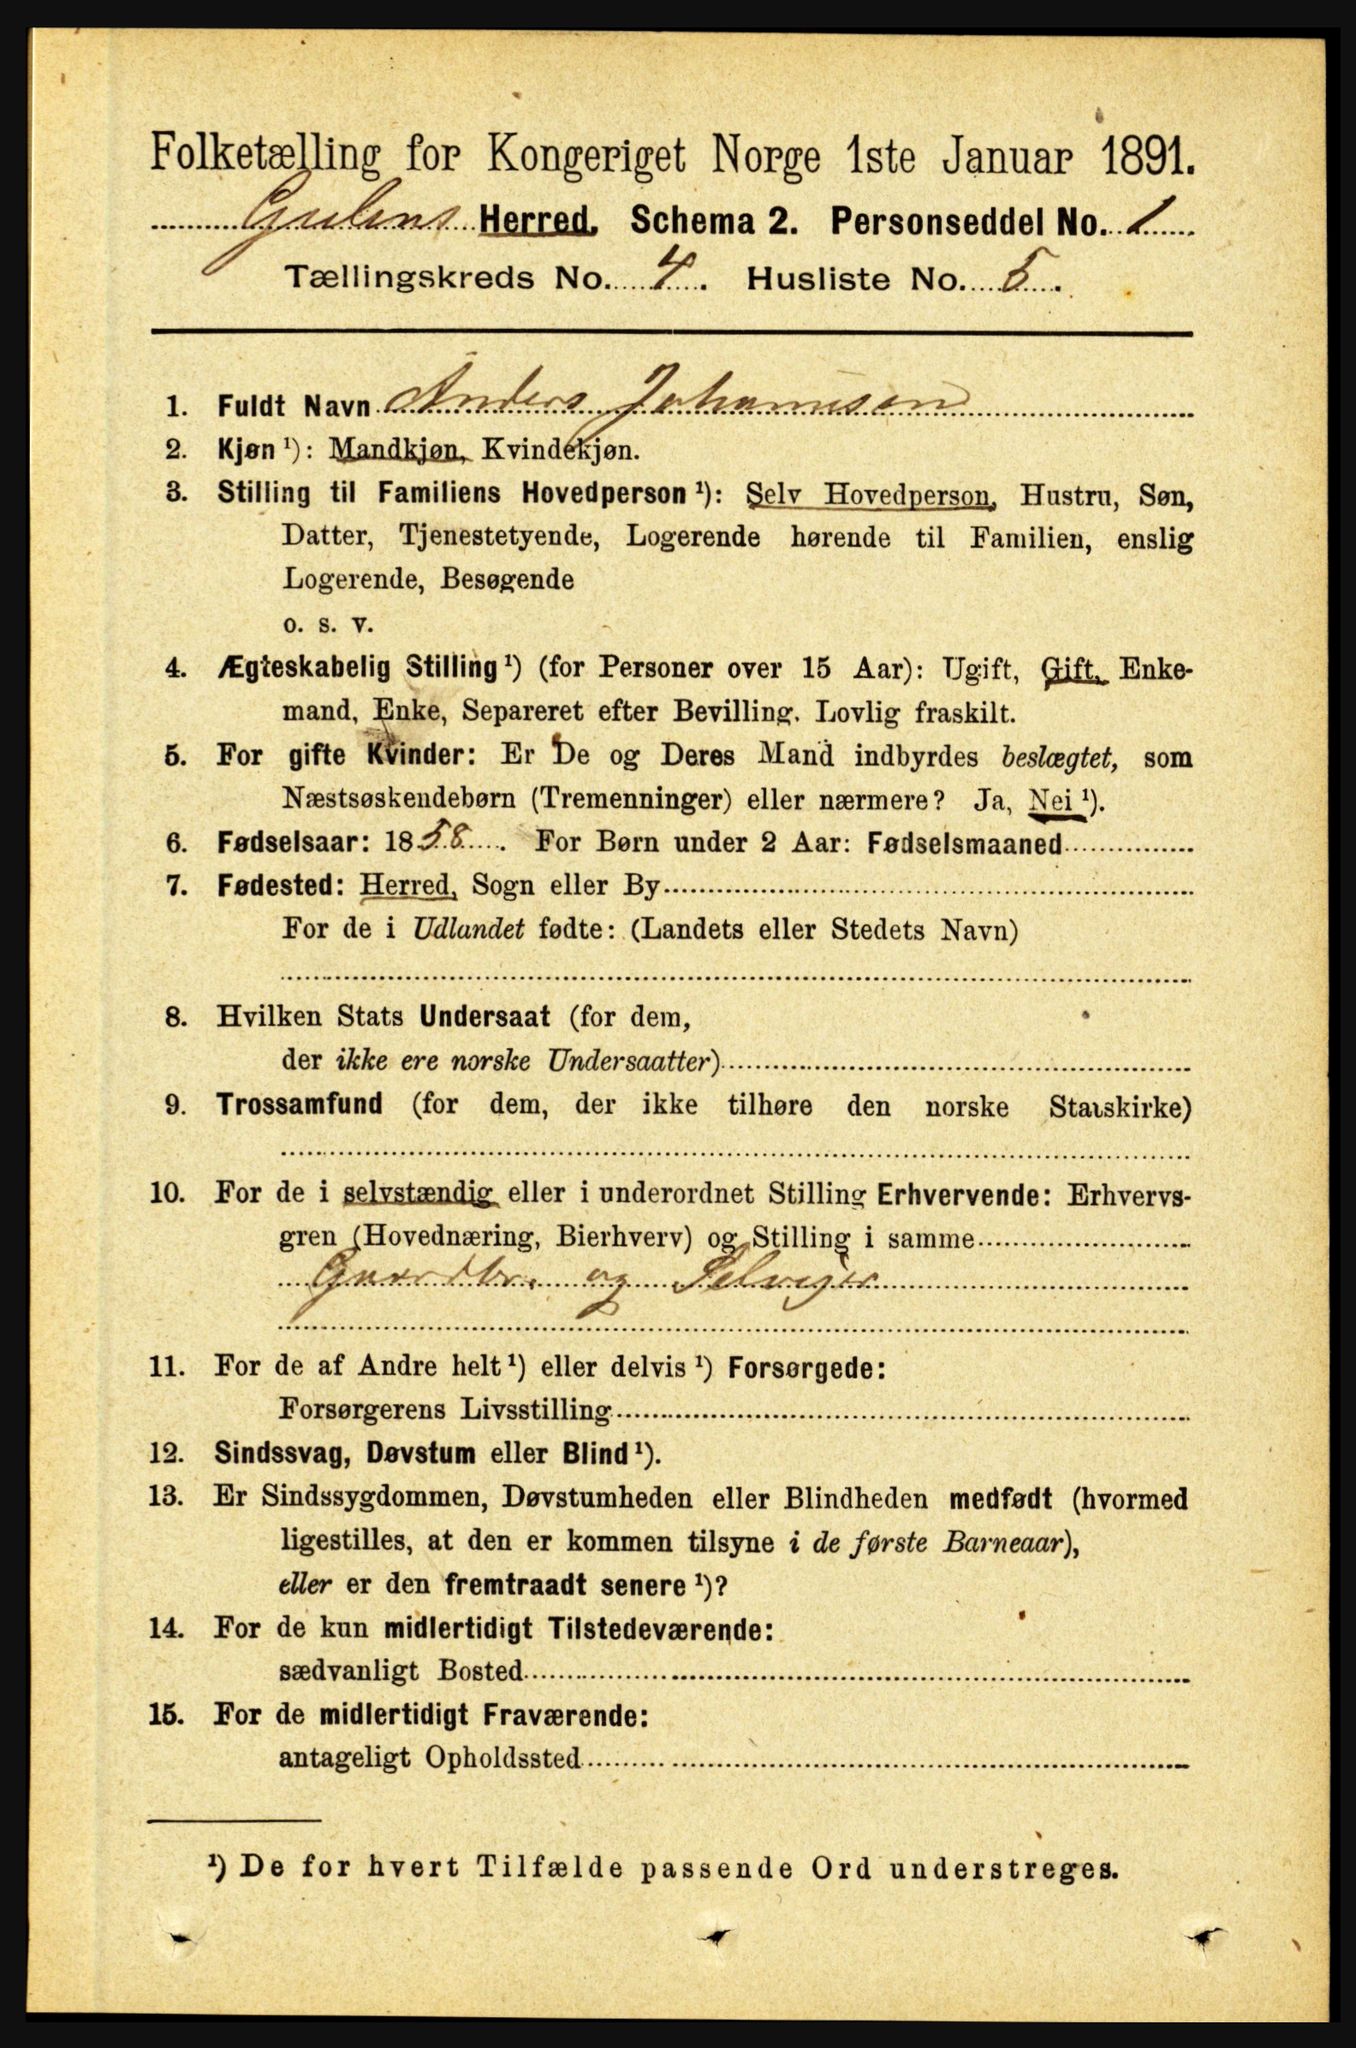 Folketælling for Kongeriget Norge 1ste Januar 1891.
Gulens Herred. Schema 2. Personseddel No. 1
Tællingskreds No. 4. Husliste No. 5.
1. Fuldt Navn Anders Johannesen
2. Kjøn ¹): Mandkjøn, Kvindekjøn.
3. Stilling til Familiens Hovedperson ¹): Selv Hovedperson, Hustru, Søn,
Datter, Tjenestetyende, Logerende hørende til Familien, enslig
Logerende, Besøgende
o. s. v.
4. Ægteskabelig Stilling ¹) (for Personer over 15 Aar): Ugift, Gift, Enke-
mand, Enke, Separeret efter Bevilling. Lovlig fraskilt.
5. For gifte Kvinder: Er De og Deres Mand indbyrdes beslægtet, som
Næstsøskendebørn (Tremenninger) eller nærmere? Ja, Nei ¹).
6. Fødselsaar: 1858. For Børn under 2 Aar: Fødselsmaaned
7. Fødested: Herred, Sogn eller By
For de i Udlandet fødte: (Landets eller Stedets Navn)
8. Hvilken Stats Undersaat (for dem,
der ikke ere norske Undersaatter)
9. Trossamfund (for dem, der ikke tilhøre den norske Statskirke)
10. For de i selvstændig eller i underordnet Stilling Erhvervende: Erhvervs-
gren (Hovednæring, Bierhverv) og Stilling i samme
Gaardbr. og Selveier
11. For de af Andre helt ¹) eller delvis ¹) Forsørgede:
Forsørgerens Livsstilling
12. Sindssvag, Døvstum eller Blind ¹).
13. Er Sindssygdommen, Døvstumheden eller Blindheden medfødt (hvormed
ligestilles, at den er kommen tilsyne i de første Barneaar),
eller er den fremtraadt senere ¹)?
14. For de kun midlertidigt Tilstedeværende:
sædvanligt Bosted
15. For de midlertidigt Fraværende:
antageligt Opholdssted
¹) De for hvert Tilfælde passende Ord understreges.